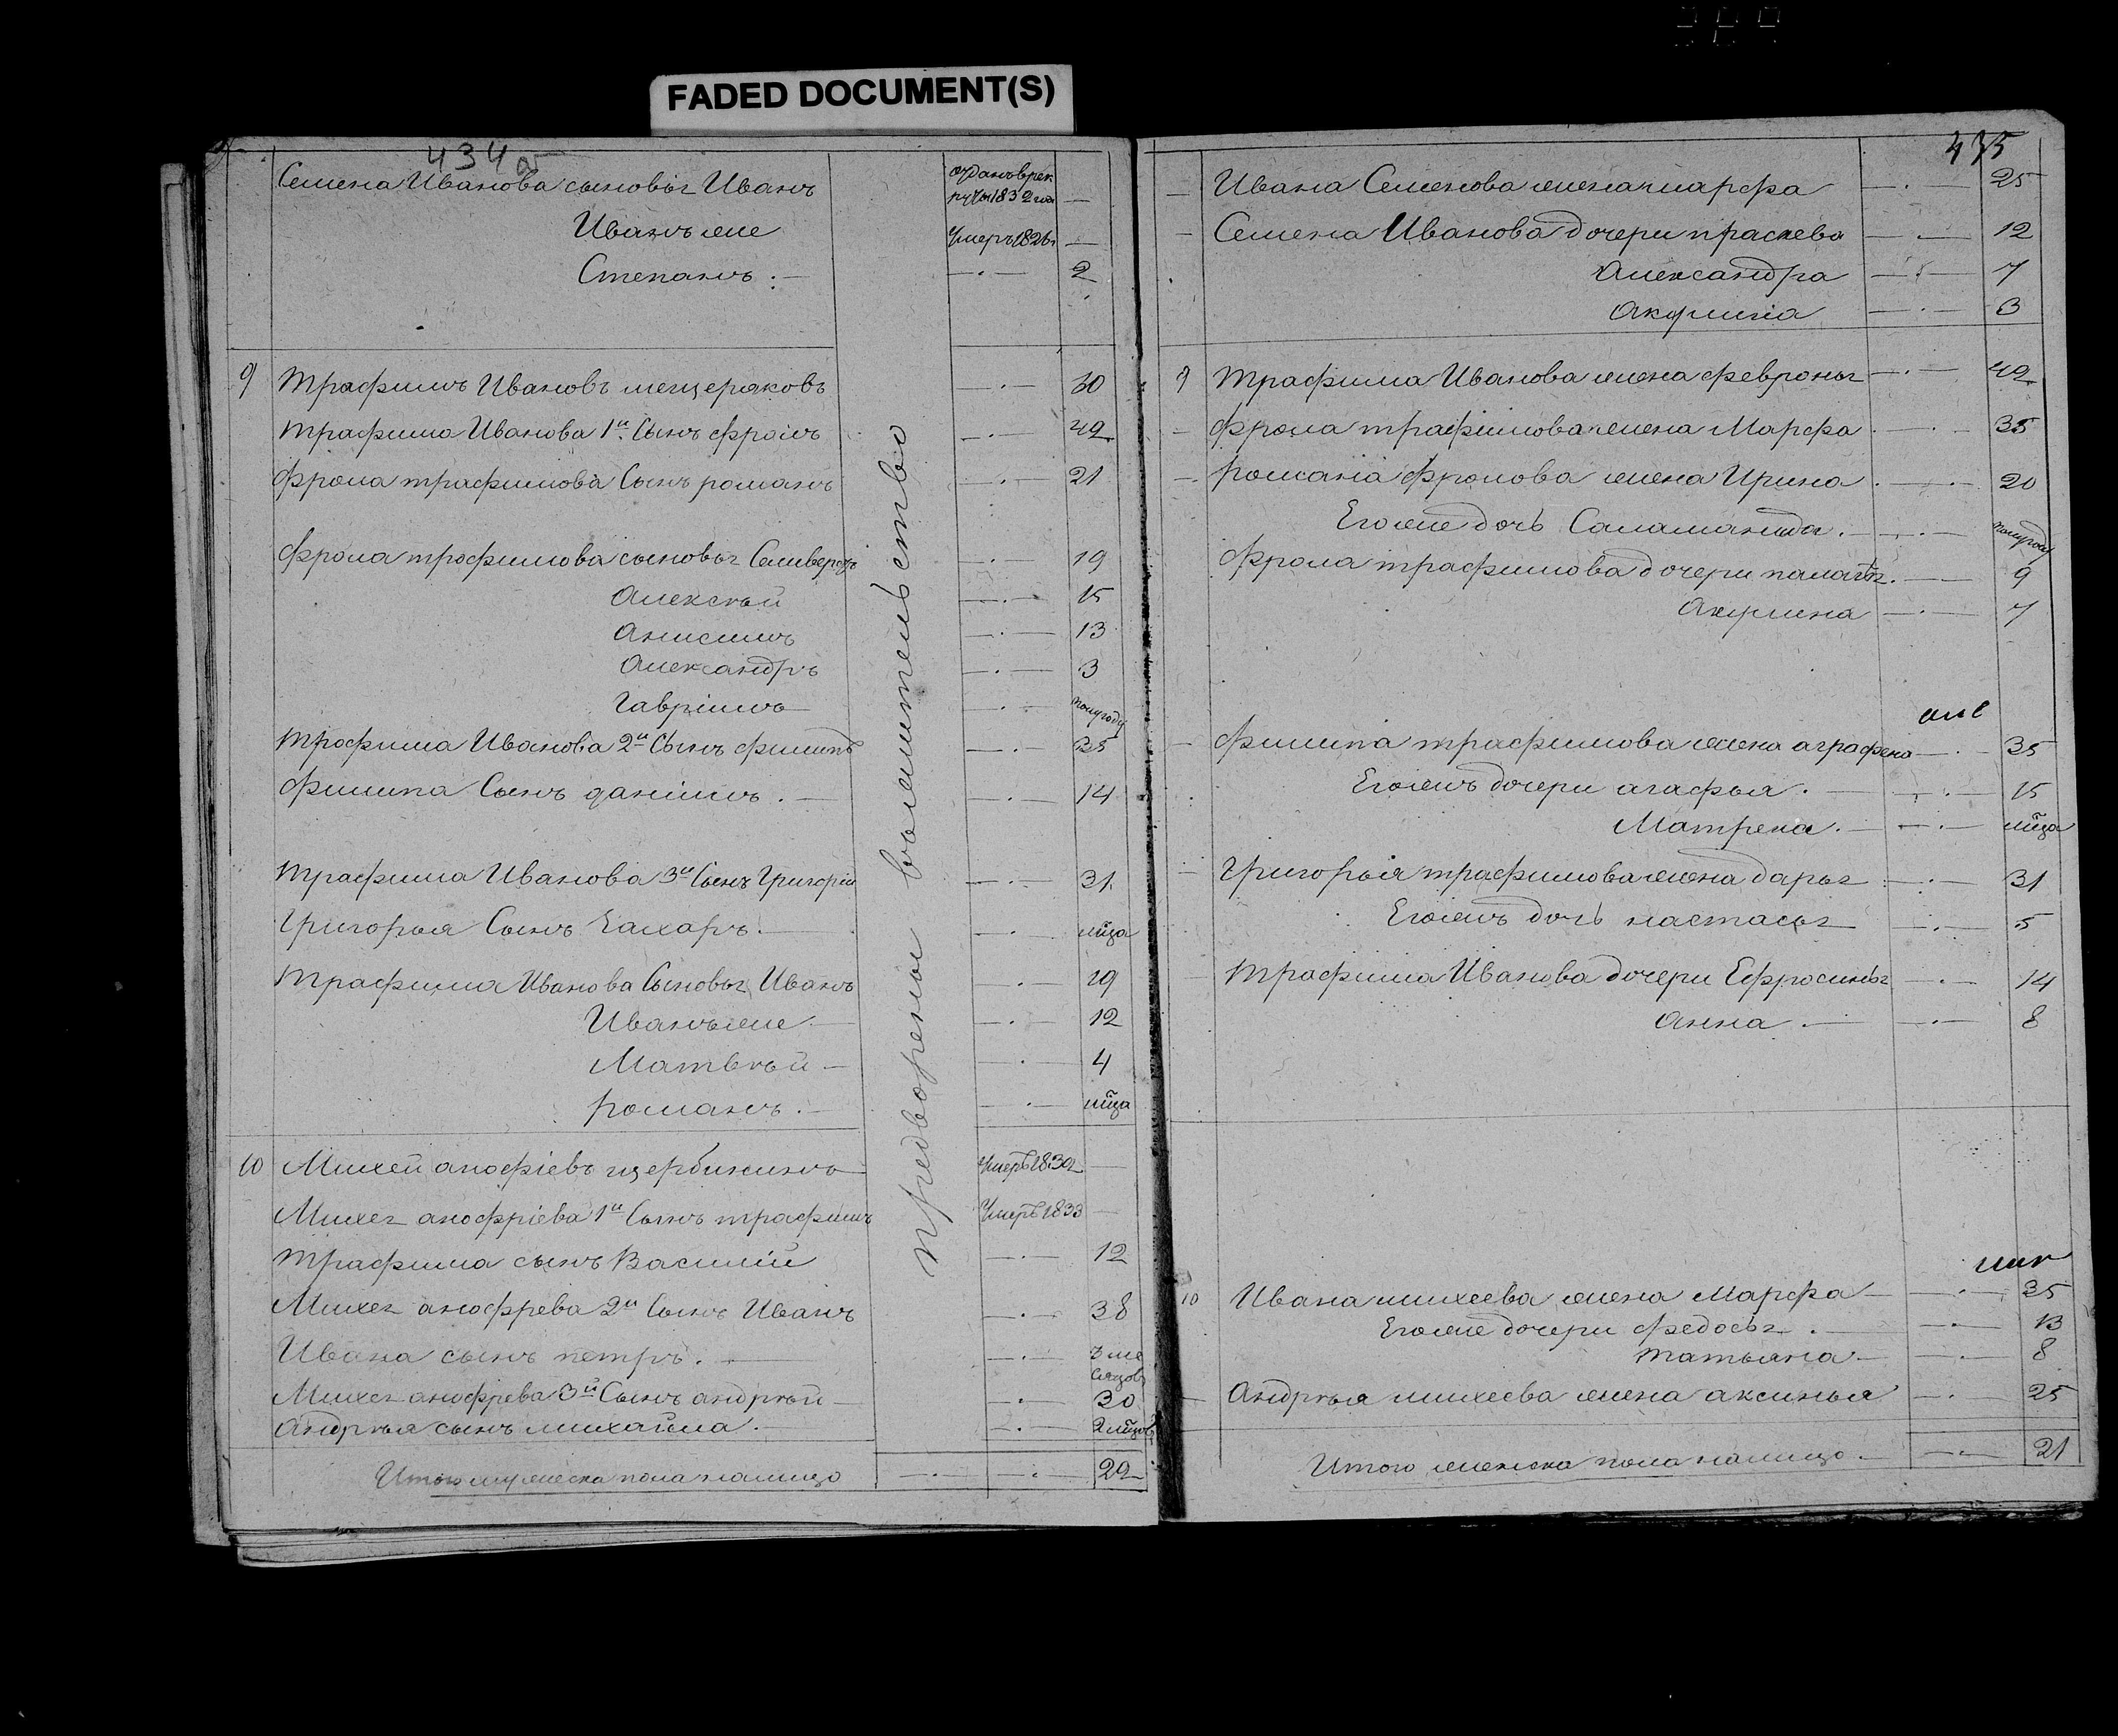 FADED DOCUMENT(S)
434 об
Семена Иванова сыновья Иванъ
отданъ в рек
руты 1832 года —
Иванъ же
Умеръ 1826 г —
Степанъ . — 2
9 Трафимъ Ивановъ мещеряковъ
Трафима Иванова 1й Сынъ фролъ 42
фрола трафимова Сынъ романъ 21
фрола трофимова сыновья Селиверстъ 19
Алексѣй 15
Анисимъ 13
Александръ 3
Гаврилъ полугоду
Трофима Иванова 2й Сынъ филипъ 35
филипа Сынъ данилъ . — 14
Трафима Иванова 3й Сынъ Григорій 31
Григорья Сынъ Захаръ. нѣца
Трафима Иванова Сыновья Иванъ 19
Иванъ же 12
Матвѣй 4
романъ . нѣца
10 Михей анофріевъ щербининъ Умеръ 1832 —
Михея анофріева 1й Сынъ трафимъ Умеръ 1833 —
Трафима сынъ Василій 12
Михея анофрева 2й Сынъ Иванъ 38
Ивана сынъ петръ. 3 ме
сяцовъ
Михея анофрева 3й Сынъ андрѣй 30
Андрѣя сынъ михайла.
Итого мужеска пола налицо 29
предворены въ жительство
435
Ивана Семенова жена марфа 25
Семена Иванова дочери прасковья 12
Александра 7
Акулина 3
9 Трафима Иванова жена февронья 42
фрола трафимова жена Марфа 35
романа фролова жена Ирина 20
Его же дочь Саламанида. полугоду
фрола трафимова дочери палагѣя. 9
Акулина 7
филипа трафимова жена аграфена 35
Его жъ дочери агафья . 15
Матрена. нѣца
Григорья трафимова жена дарья 31
Его жъ дочь настасья 5
Трафима Иванова дочери Ефросинья 14
Анна . 8
10 Ивана михеева жена Марфа 35
Его же дочери федосья . 13
татьяна 8
Андрѣя михеева жена аксинья 25
Итого женска пола налицо 21